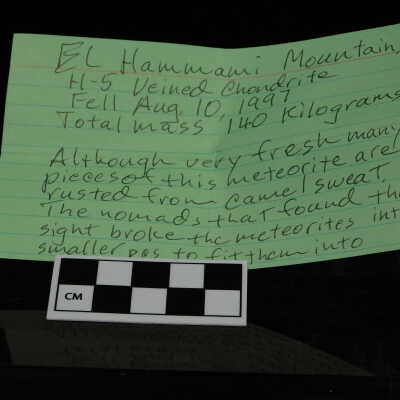 EL Hammami Mountain,
H-5 Veined Chondrite
Fell Aug 10, 1997
Total mass 140 Kilograms
Although very fresh many
pieces of this meteorite are
rusted from camel sweat.
The nomads that found the
sight broke the meteorites int
smaller pcs to fit them into
CM